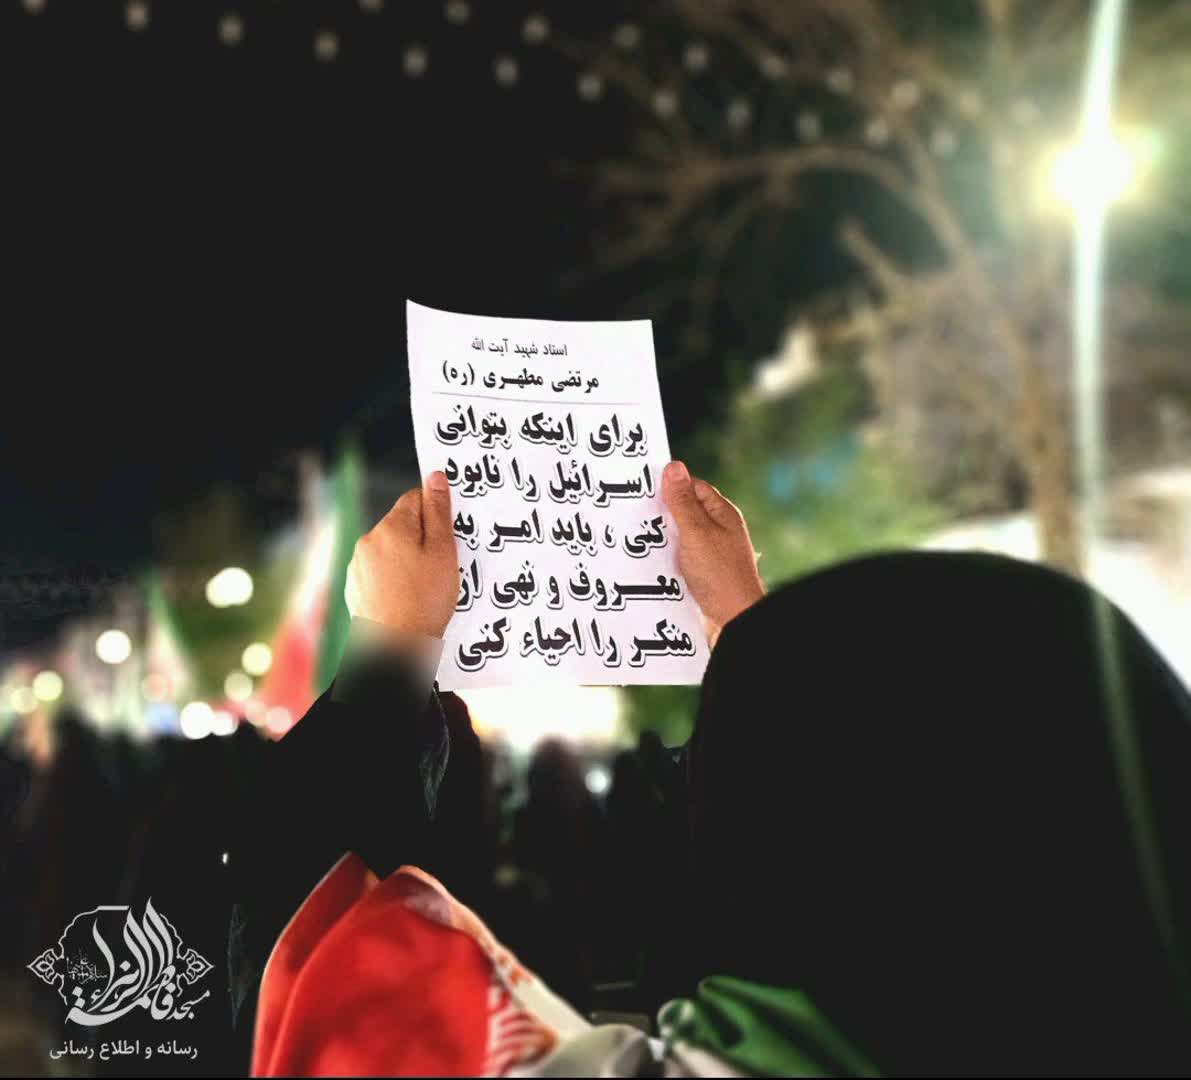 استاد شهید آیت الله
مرتضی مطهری (ره)
برای اینکه بتوانی
اسرائیل را نابود
کنی ، باید امر به
معروف و نهی از
منکر را احیاء کنی
مسجد فاطمة الزهراء
رسانه و اطلاع رسانی